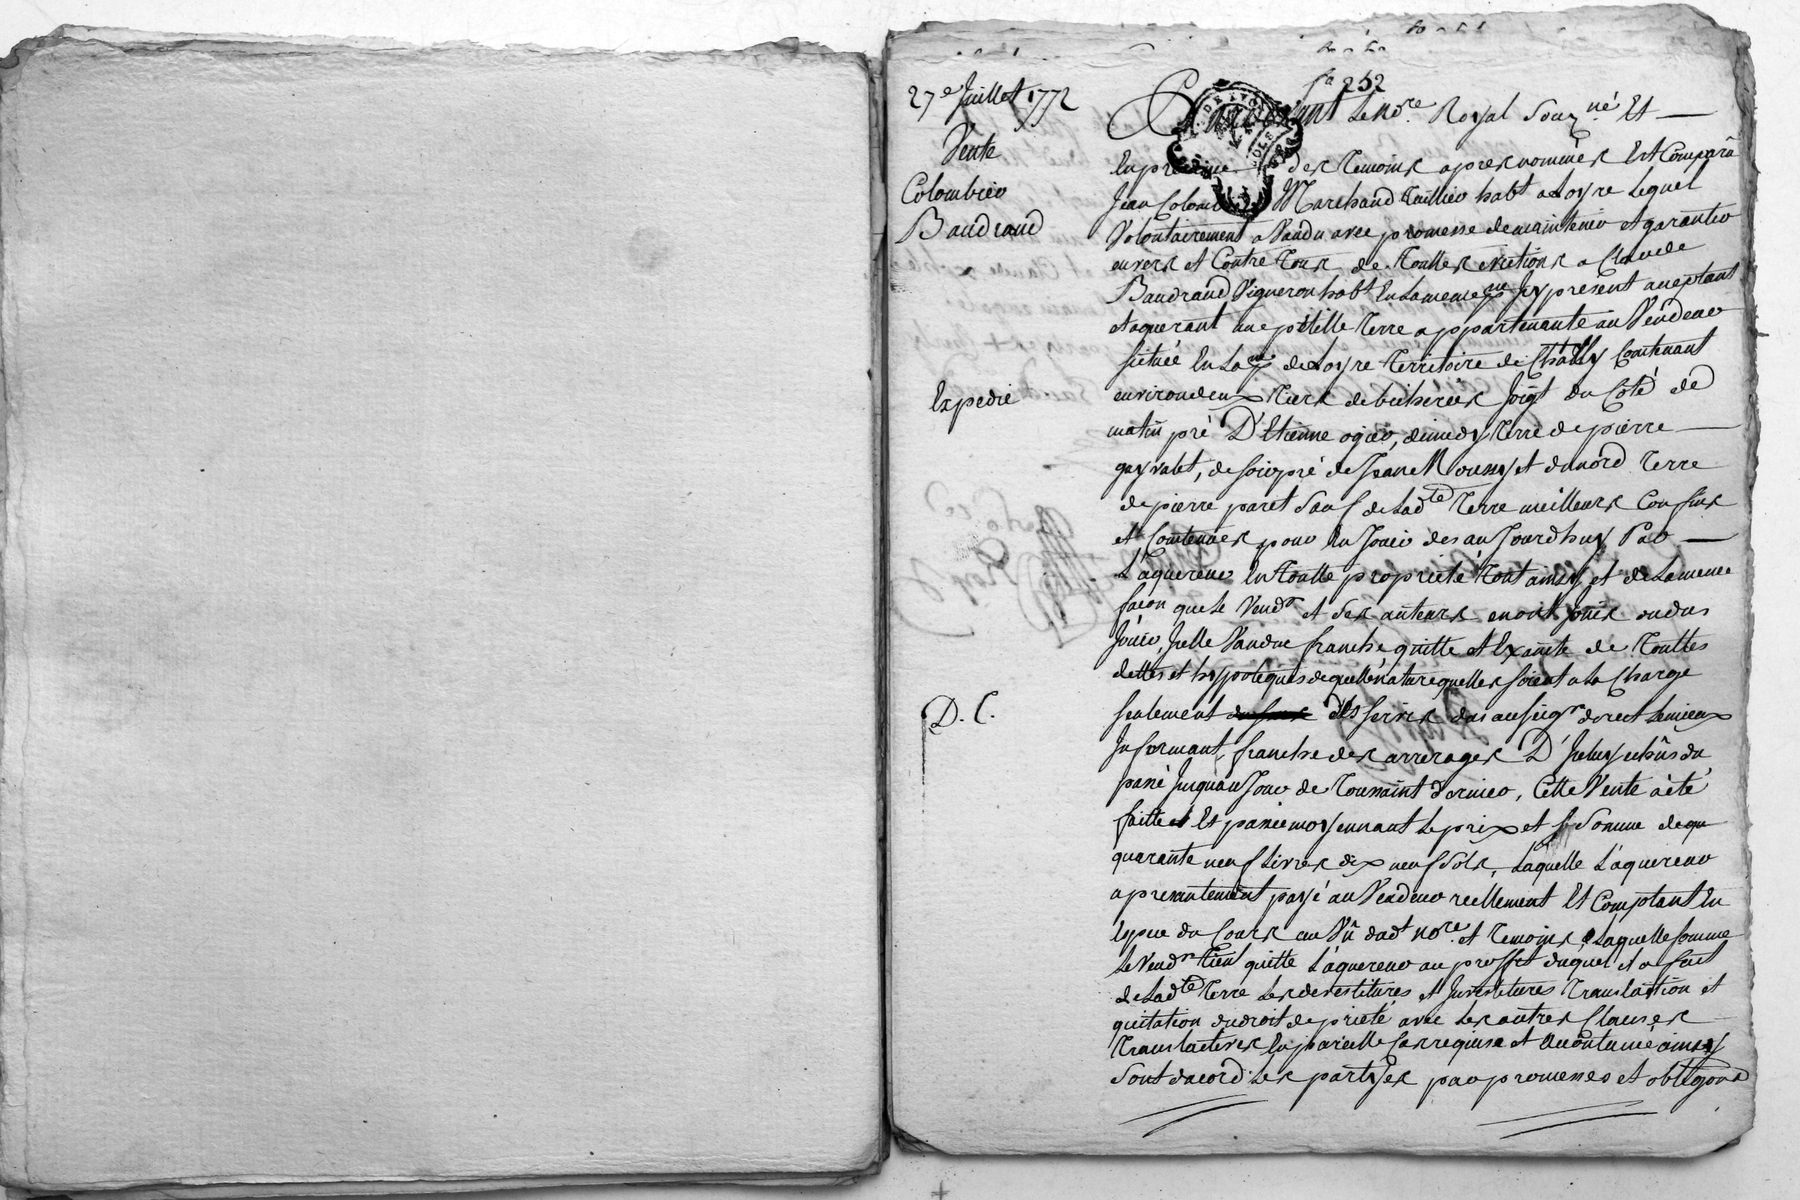 27e Juillet 1772
Vente
Colombier
Baudrand
Expedié
D. C.
fo 252
Pardevant le Nore. Royal Souz.né Et
En presence des temoins apres nommés Est Comparu
Jean Colombier Marchand taillier habt a Loyre Lequel
Volontairement a Vandu avec promesse de maintenir et garantir
envers et Contre tous de touttes evictions a Claude
Baudrand Vigneron habt En la meme psse Jcy present aceptant
et aquerant une petitte terre appartenante au Vendeur
située En la psse de Loyre territoire de Contenant
environ deux tiers de bicherées Joigt du Coté de
matin pré D'Etienne ogier, de midy terre de pierre
gayvalet, de soir pré de Jean et du nord terre
de pierre paret Sauf de Ladte terre meilleurs Confins
et Contenues pour En Jouir des au Jourdhuy Par
L'aquereur En toutte proprieté tout ainsy et de La meme
façon que le Vendr et Ses auteurs en ont jouis ou dus
Jouir, Jcelle Vandue franche quitte et Exante de touttes
dettes et hypoteques de quelle nature quelles soient a la Charge
seulement des servis dus au seigr direct le mieux
Jnformant, franche des arrerages D'Jceluy echûs du
passé Jusquau Jour de toussaint dernier, Cette Vente a été
faitte Et passée moyennant Le prix et Somme de
quarante neuf Livres dix neuf sols, Laquelle L'aquereur
a presentement payé au Vendeur reellement Et Comptant En
Espece du Cours au Vû dudt nore. et temoins, de Laquelle somme
Le Vendr tient quitte L'aquereur au proffit duquel il a fait
de Ladte terre Les devestitures et Jnvestitures translation et
quitation du droit de prieté avec Les autres Clauses
translatives En pareille Cas requise et acoutumé ainsy
Sont dacord Les partyes par promesses et obligons